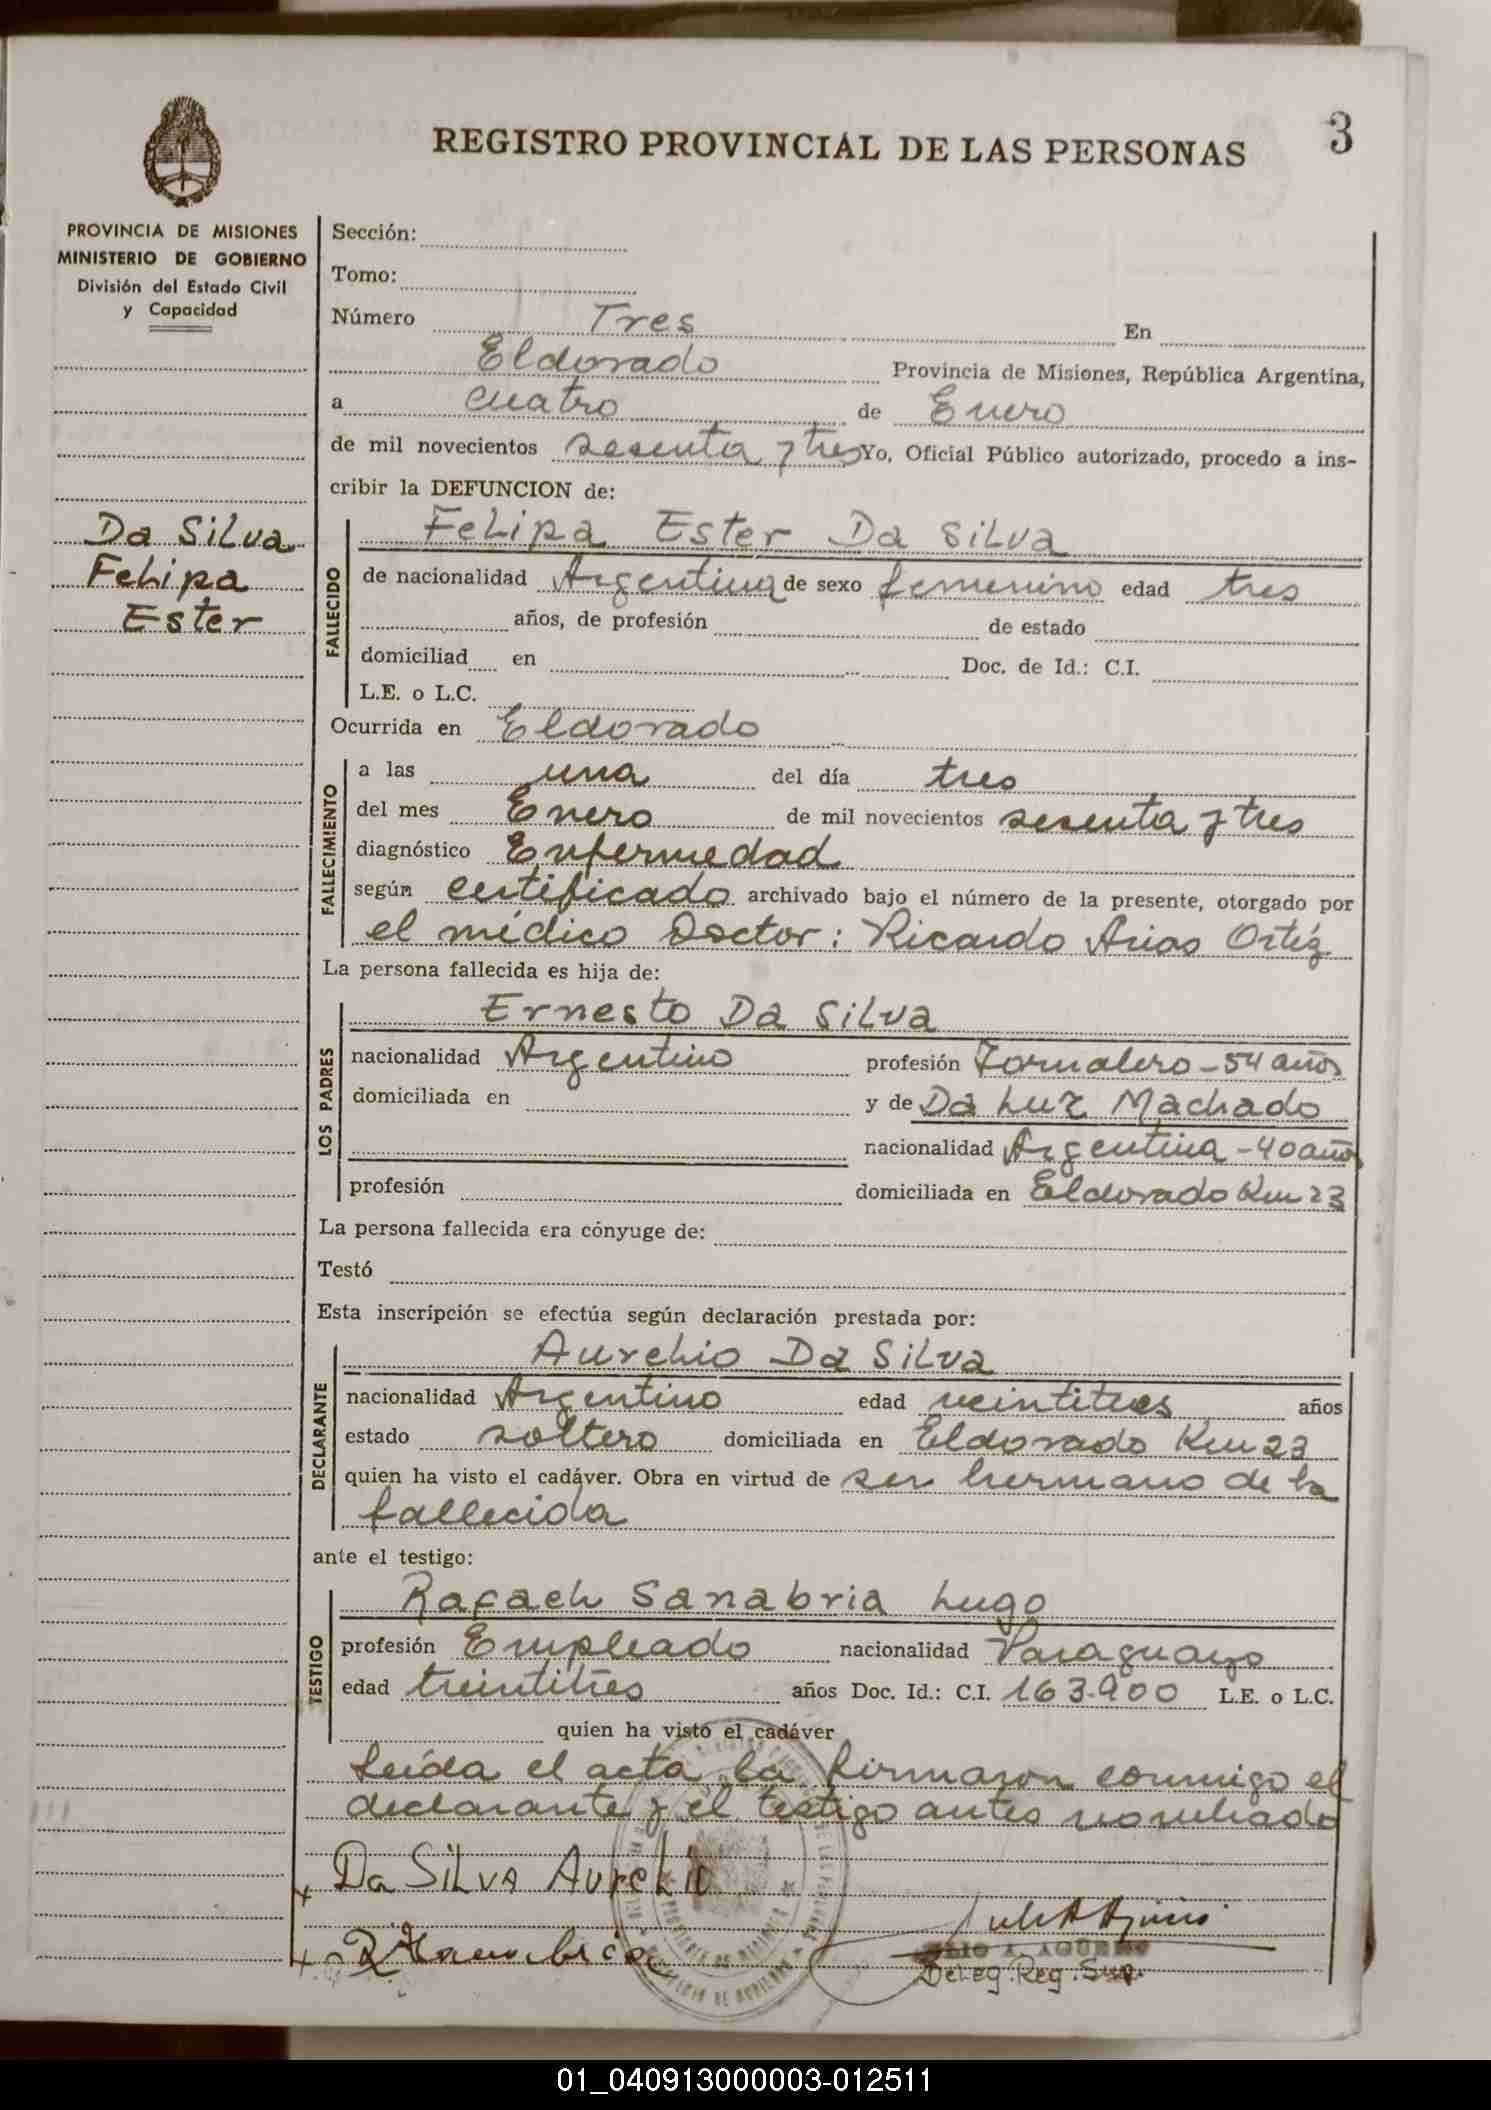 REGISTRO PROVINCIAL DE LAS PERSONAS
3
PROVINCIA DE MISIONES
MINISTERIO DE GOBIERNO
División del Estado Civil
y Capacidad
Da Silva
Felipa
Ester
Sección:
Tomo:
Número Tres En
Eldorado Provincia de Misiones, República Argentina,
a cuatro de Enero
de mil novecientos sesenta y tres Yo, Oficial Público autorizado, procedo a ins-
cribir la DEFUNCION de:
FALLECIDO
Felipa Ester Da Silva
de nacionalidad Argentina de sexo femenino edad tres
años, de profesión de estado
domiciliad en Doc. de Id.: C.I.
L.E. o L.C.
Ocurrida en Eldorado
FALLECIMIENTO
a las una del día tres
del mes Enero de mil novecientos sesenta y tres
diagnóstico Enfermedad
según certificado archivado bajo el número de la presente, otorgado por
el médico Doctor: Ricardo Arias Ortíz
La persona fallecida es hija de:
LOS PADRES
Ernesto Da Silva
nacionalidad Argentino profesión Jornalero - 54 años
domiciliada en y de Da Luz Machado
nacionalidad Argentina - 40 años
profesión domiciliada en Eldorado Km 23
La persona fallecida era cónyuge de:
Testó
Esta inscripción se efectúa según declaración prestada por:
DECLARANTE
Aurelio Da Silva
nacionalidad Argentino edad veintitres años
estado soltero domiciliada en Eldorado Km 23
quien ha visto el cadáver. Obra en virtud de ser hermano de la
fallecida
ante el testigo:
TESTIGO
Rafael Sanabria Lugo
profesión Empleado nacionalidad Paraguayo
edad treintitres años Doc. Id.: C.I. 163.900 L.E. o L.C.
quien ha visto el cadáver
Leída el acta la firmaron conmigo el
declarante y el testigo antes nombrado
Da Silva Aurelio
R Sanabria
Deleg. Reg. Sup.
01_040913000003-012511